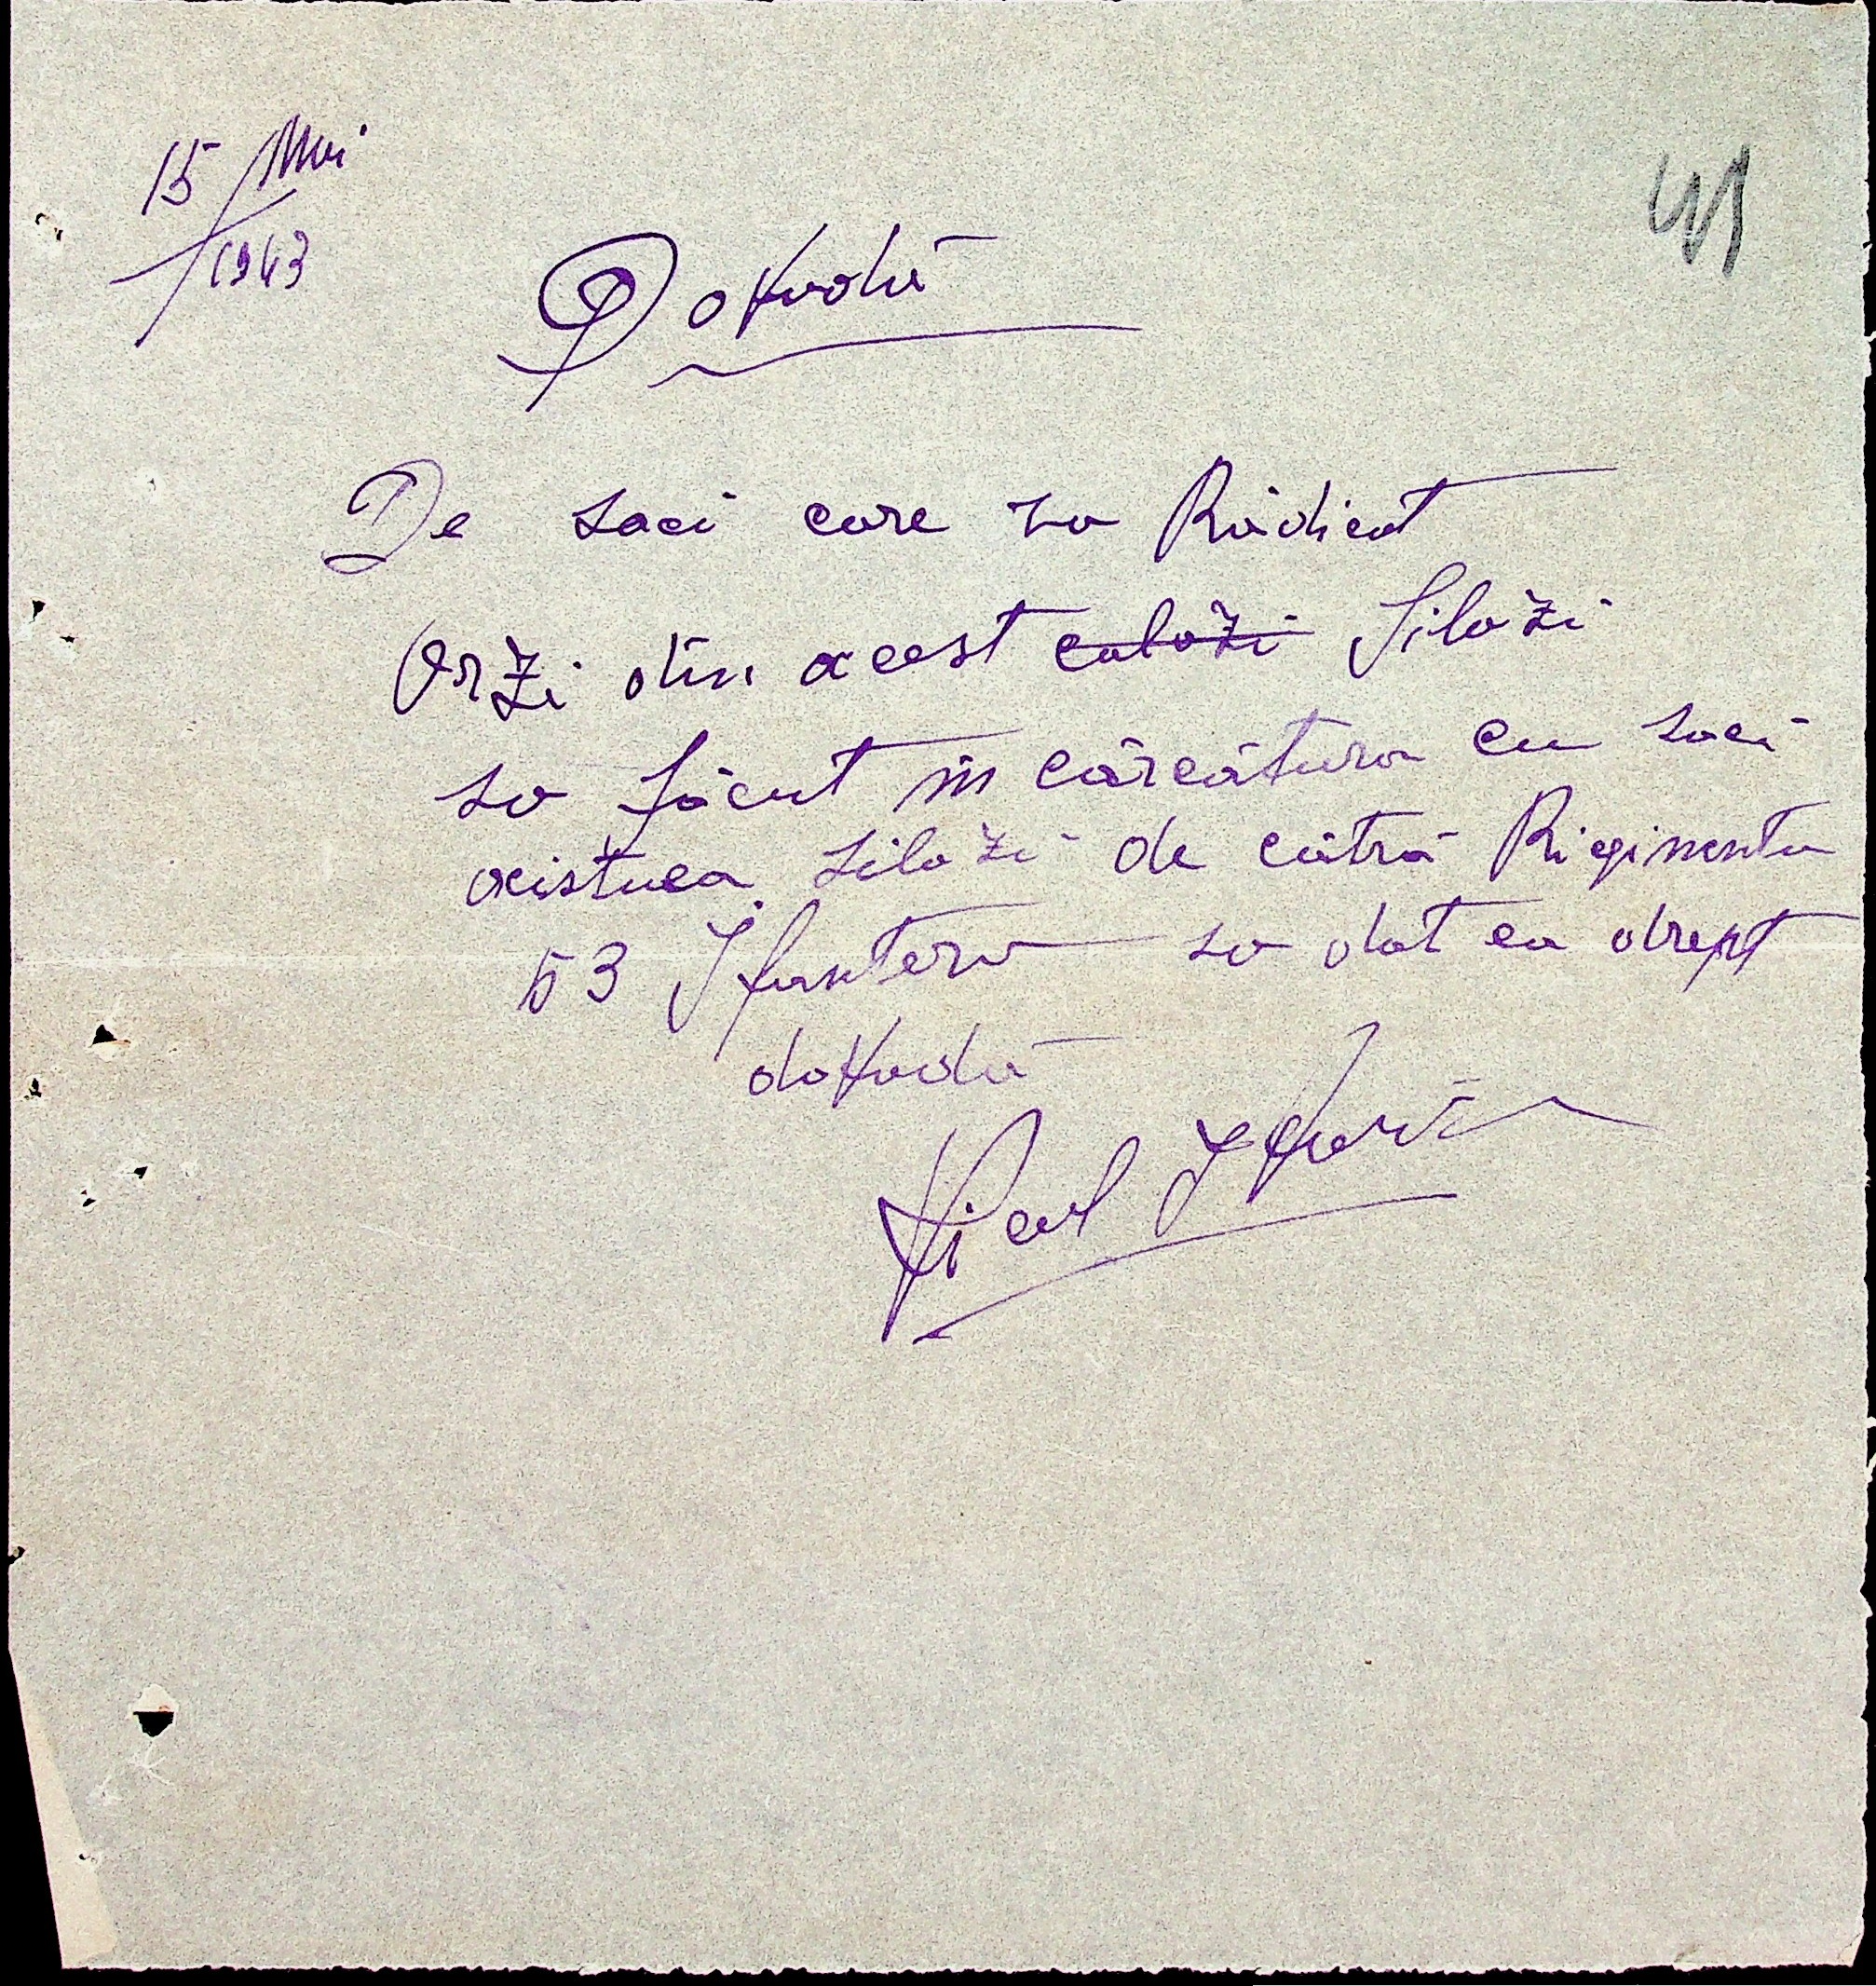 15 Mai
1943
41
Dovadă
De saci care sa Rădicat
Orzi din acest calozi Silozi
sa făcut în cărcătura cu saci
acistuea silozi de cătră Rigimentu
53 Ifanteria sa dat ca drept
dovadă